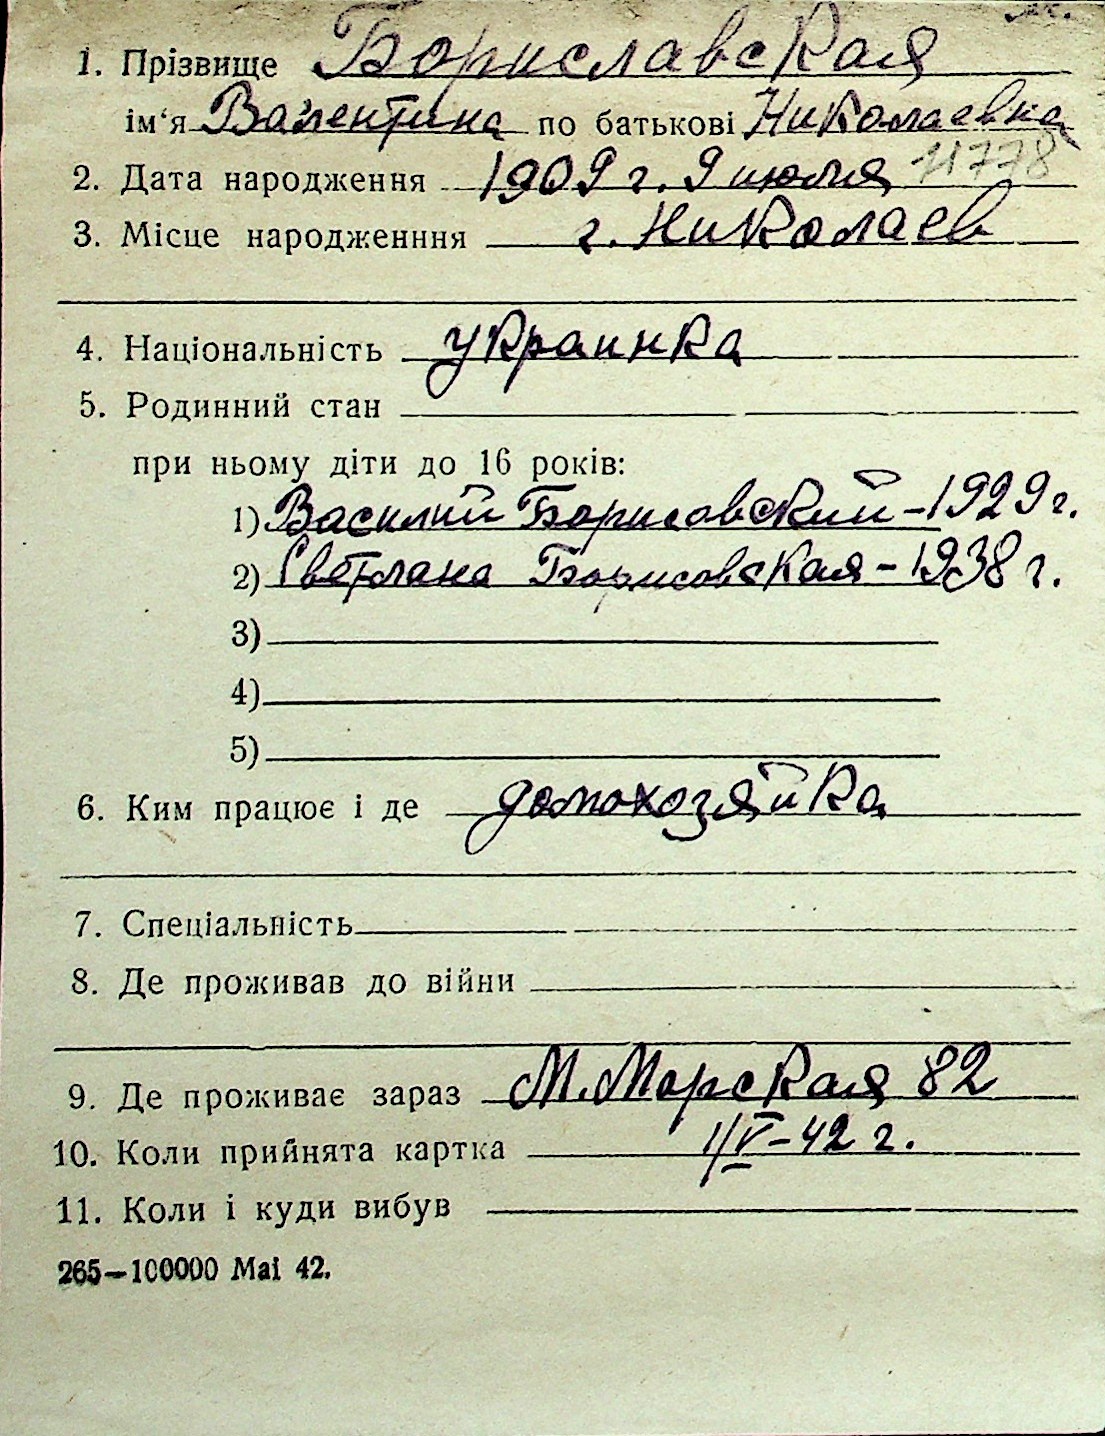 1. Прізвище Бориславская
ім'я Валентина по батькові Николаевна
11778
2. Дата народження 1909 г. 9 июля
3. Місце народженння г. Николаев
4. Національність украинка
5. Родинний стан
при ньому діти до 16 років:
1) Василий Борисовский - 1929 г.
2) Светлана Борисовская - 1938 г.
3)
4)
5)
6. Ким працює і де домохозяйка
7. Спеціальність
8. Де проживав до війни
9. Де проживає зараз М. Морская 82
10. Коли прийнята картка 1/V-42 г.
11. Коли і куди вибув
265—100000 Mai 42.